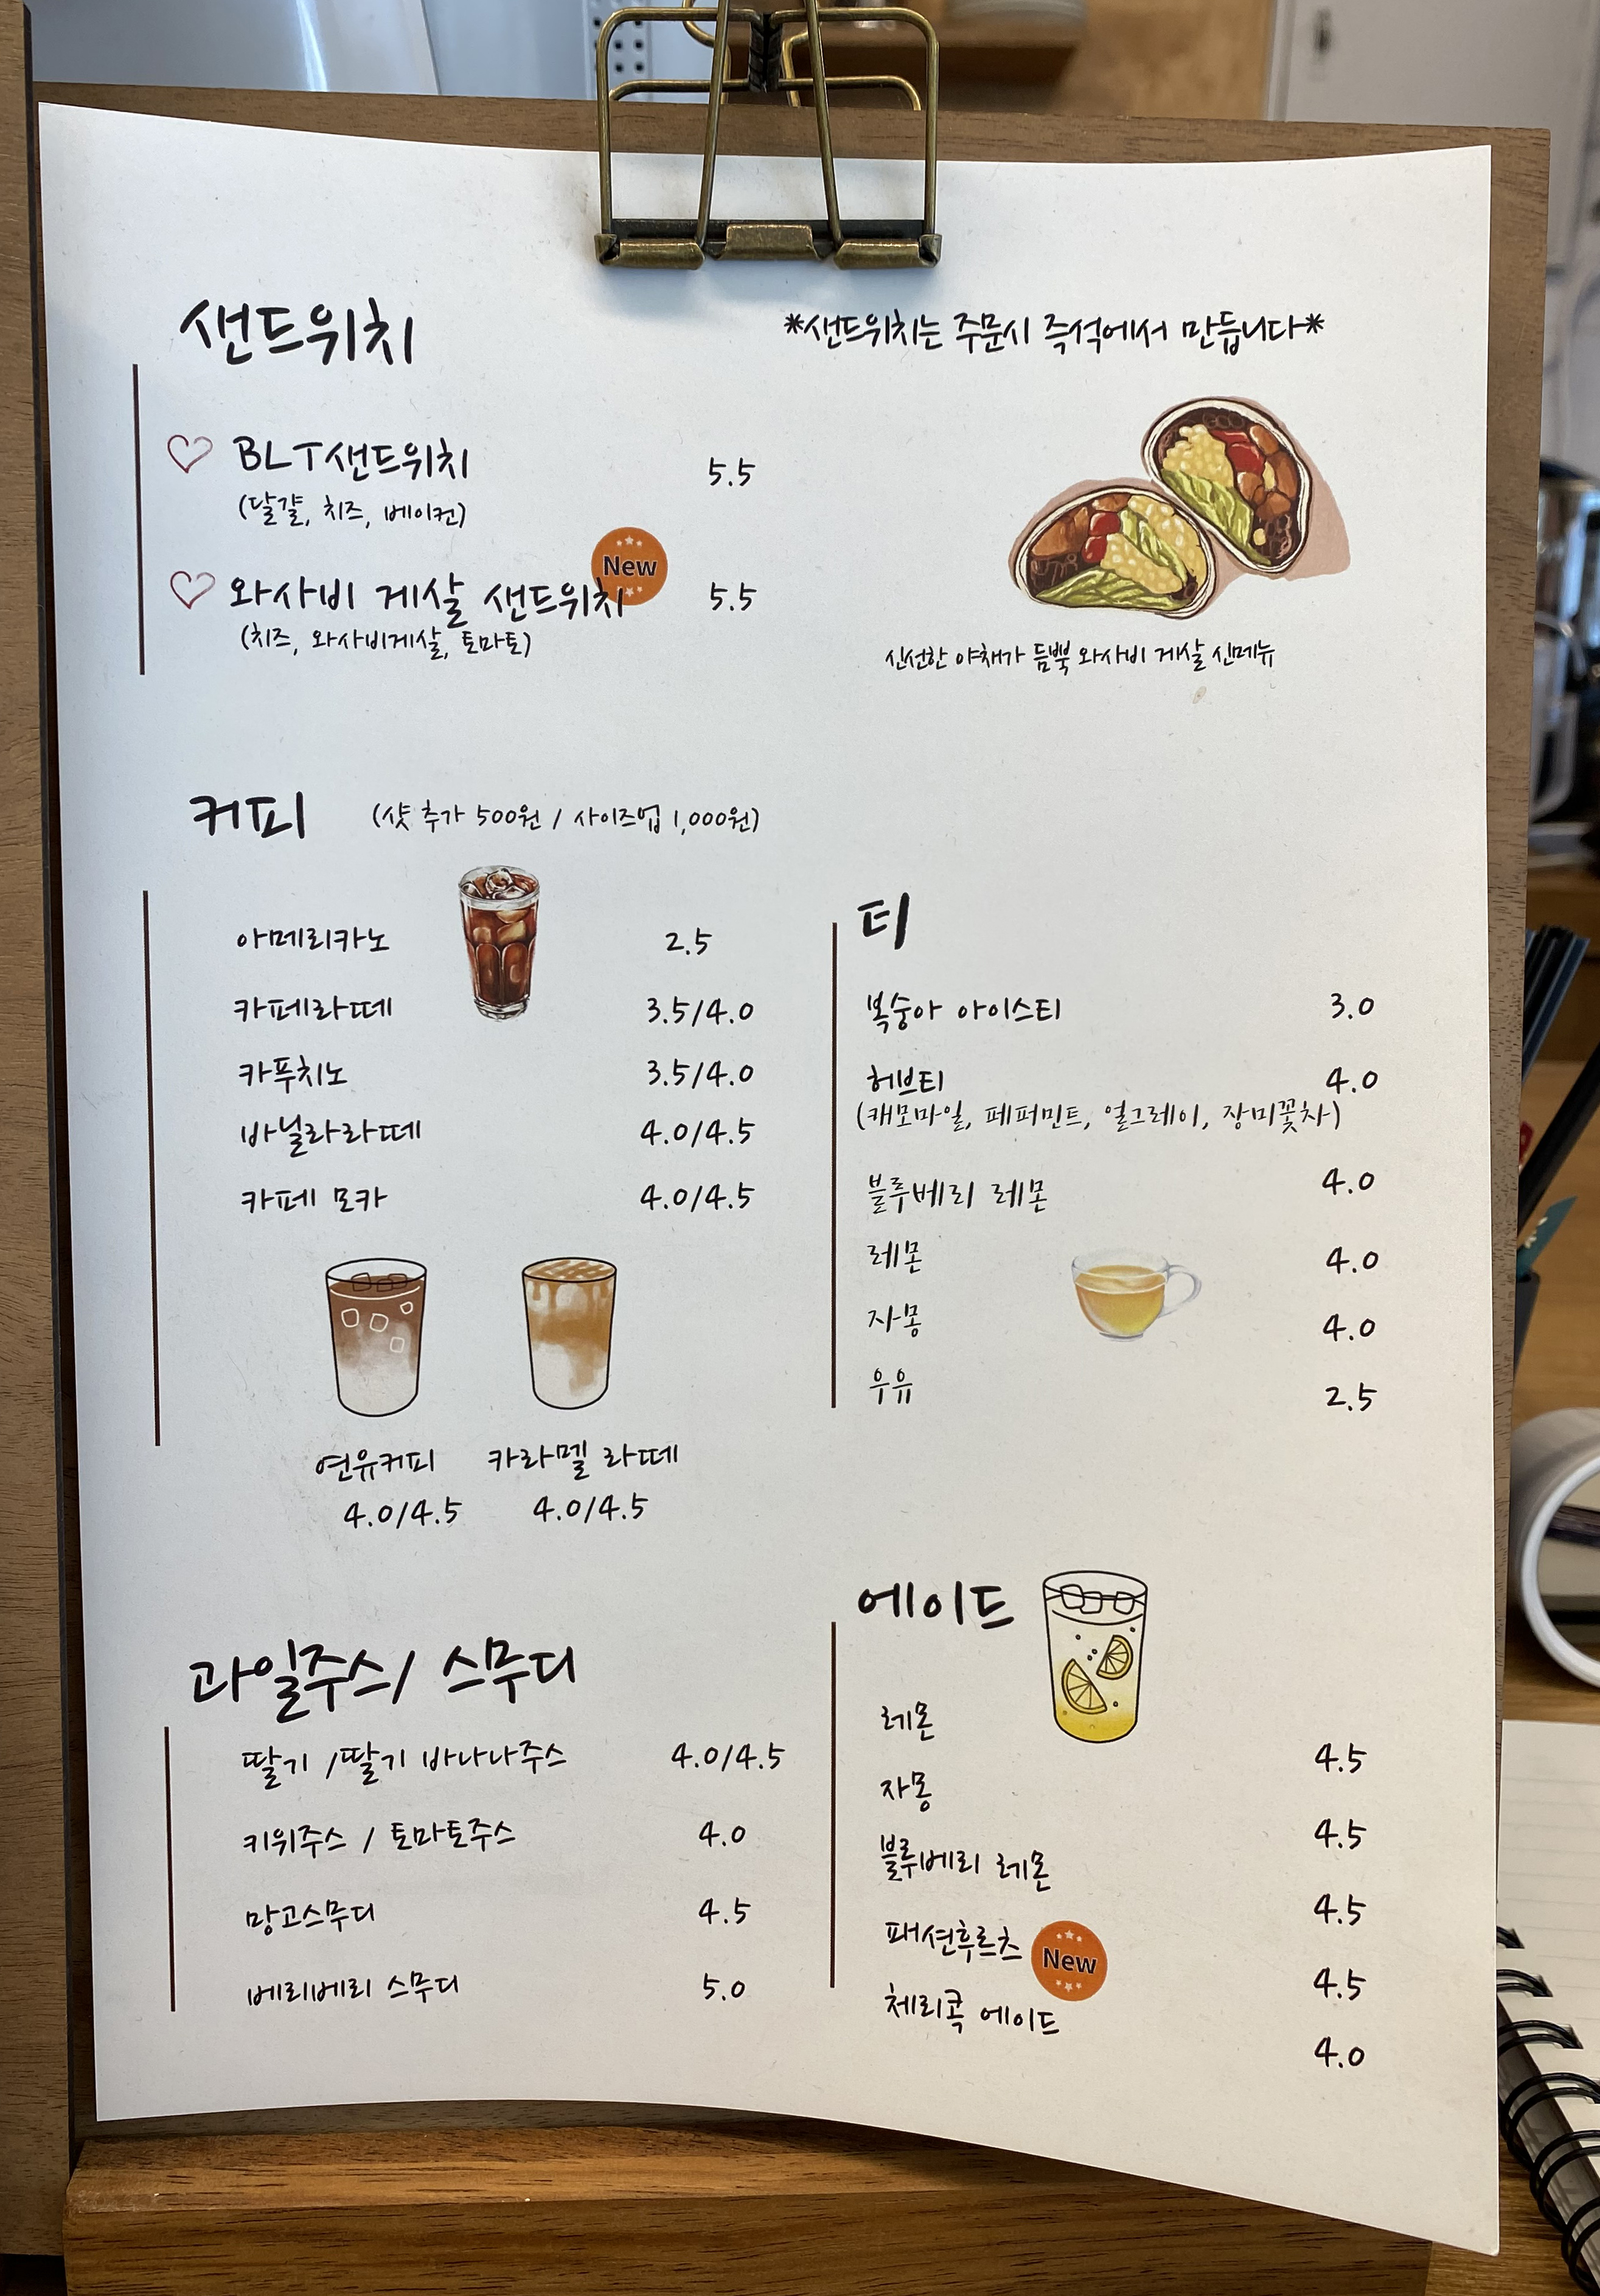 샌드위치
*샌드위치는 주문시 즉석에서 만듭니다*
BLT샌드위치 5.5
(달걀, 치즈, 베이컨)
New
와사비 게살 샌드위치 5.5
(치즈, 와사비게살, 토마토)
신선한 야채가 듬뿍 와사비 게살 신메뉴
커피 (샷 추가 500원 / 사이즈업 1,000원)
아메리카노 2.5
카페라떼 3.5/4.0
카푸치노 3.5/4.0
바닐라라떼 4.0/4.5
카페 모카 4.0/4.5
연유커피 카라멜 라떼
4.0/4.5 4.0/4.5
티
복숭아 아이스티 3.0
허브티 4.0
(캐모마일, 페퍼민트, 얼그레이, 장미꽃차)
블루베리 레몬 4.0
레몬 4.0
자몽 4.0
우유 2.5
과일주스/ 스무디
딸기 /딸기 바나나주스 4.0/4.5
키위주스 / 토마토주스 4.0
망고스무디 4.5
베리베리 스무디 5.0
에이드
레몬 4.5
자몽 4.5
블루베리 레몬 4.5
패션후르츠 4.5
New
체리콕 에이드 4.0